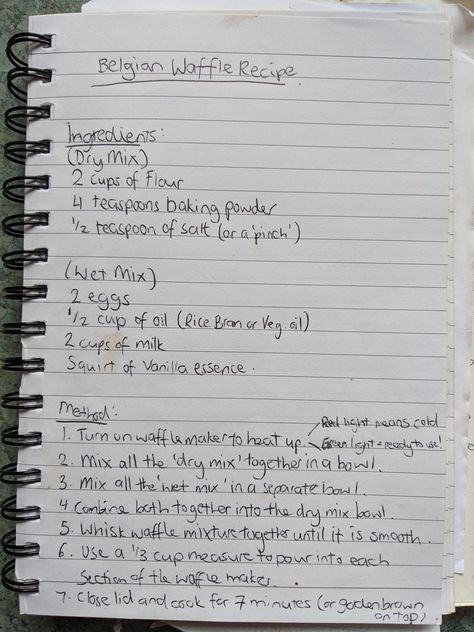 Belgian Waffle Recipe
Ingredients:
(Dry Mix)
2 cups of Flour
4 teaspoons baking powder
1/2 teaspoon of salt (or a 'pinch')
(Wet Mix)
2 eggs
1/2 cup of oil (Rice Bran or Veg. oil)
2 cups of milk
Squirt of Vanilla essence.
Method:
Red light means cold
1. Turn on waffle maker to heat up.
Green light = ready to use!
2. Mix all the 'dry mix' together in a bowl.
3. Mix all the 'wet mix' in a separate bowl.
4 Combine both together into the dry mix bowl.
5. Whisk waffle mixture together until it is smooth.
6. Use a 1/3 cup measure to pour into each
section of the waffle maker.
7. Close lid and cook for 7 minutes (or golden brown
on top)